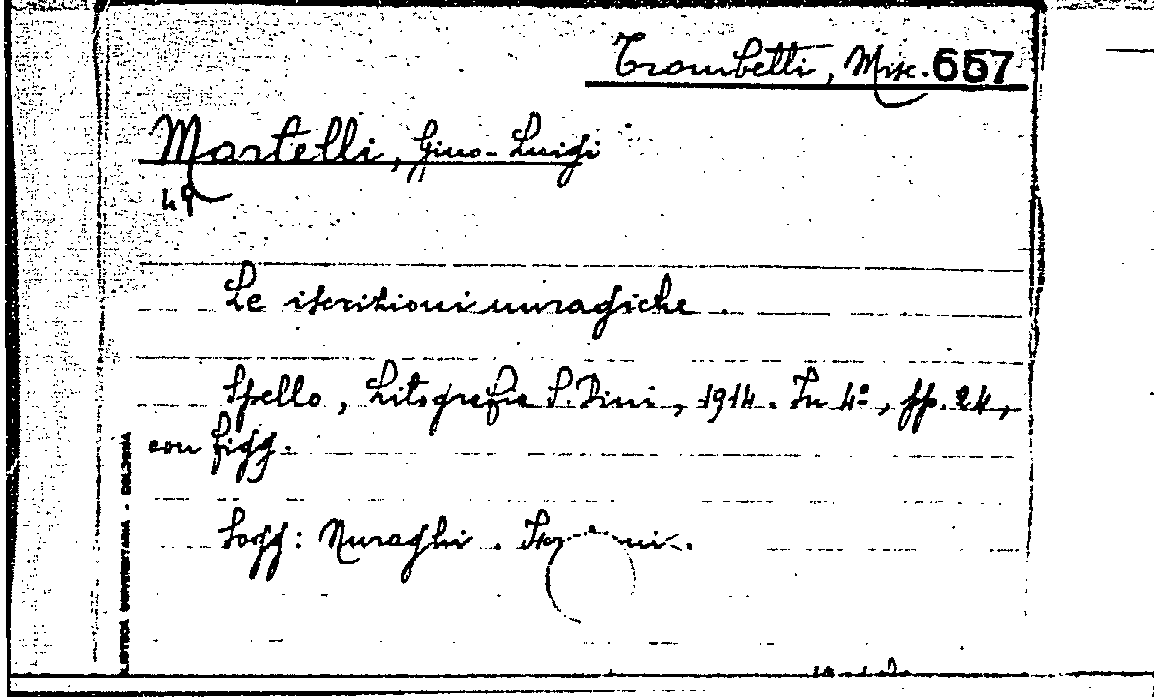 Trombetti, Misc. 657
Martelli, Gino-Luigi
49
Le iscrizioni nuragiche.
Spello, Litografia S. Dini, 1914. In 4º, pp. 24,
con figg.
Sogg: Nuraghi.
BIBLIOTECA UNIVERSITARIA - BOLOGNA